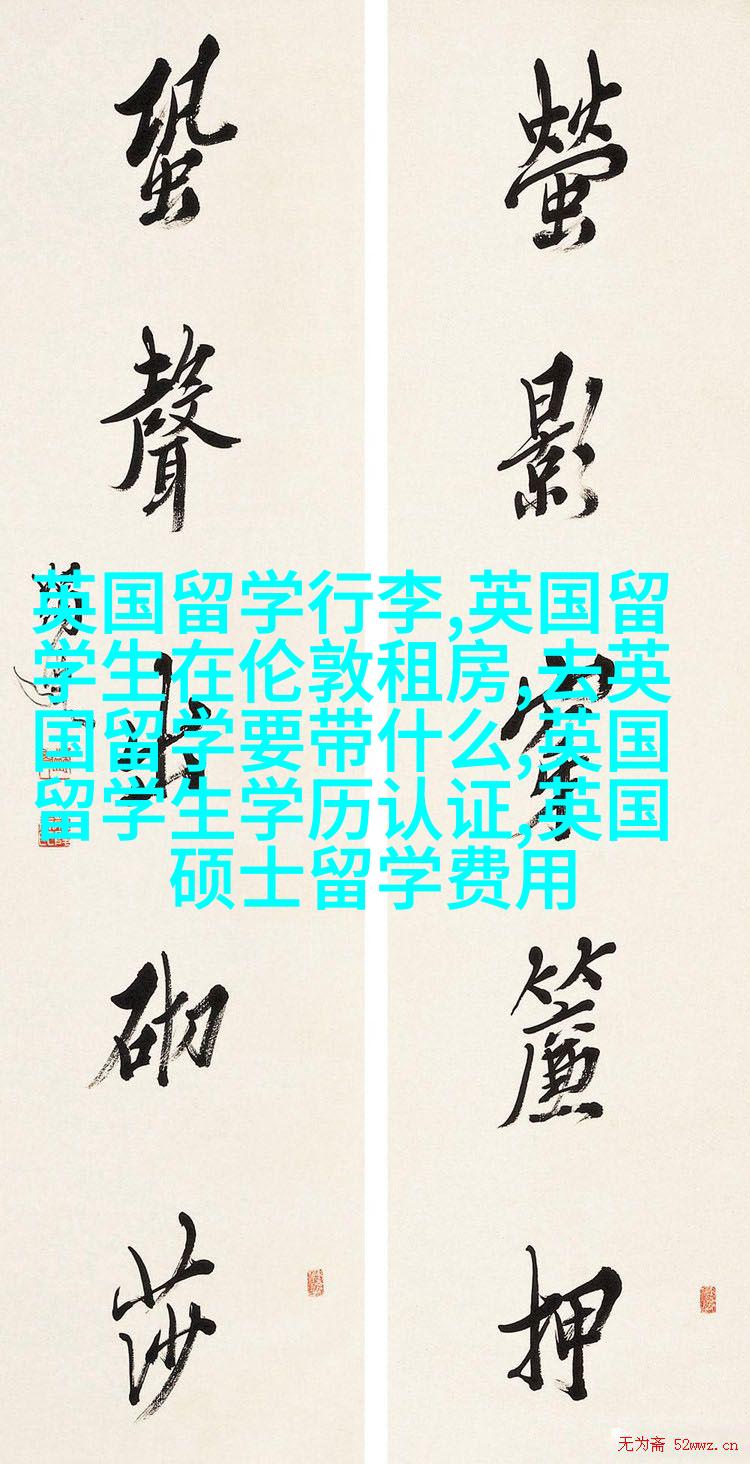 螢影穿簾押
蛩聲
砌莎
英国留学行李,英国留
学生在伦敦租房,去英
国留学要带什么,英国
留学生学历认证,英国
硕士留学费用
无为斋 52wwz.cn